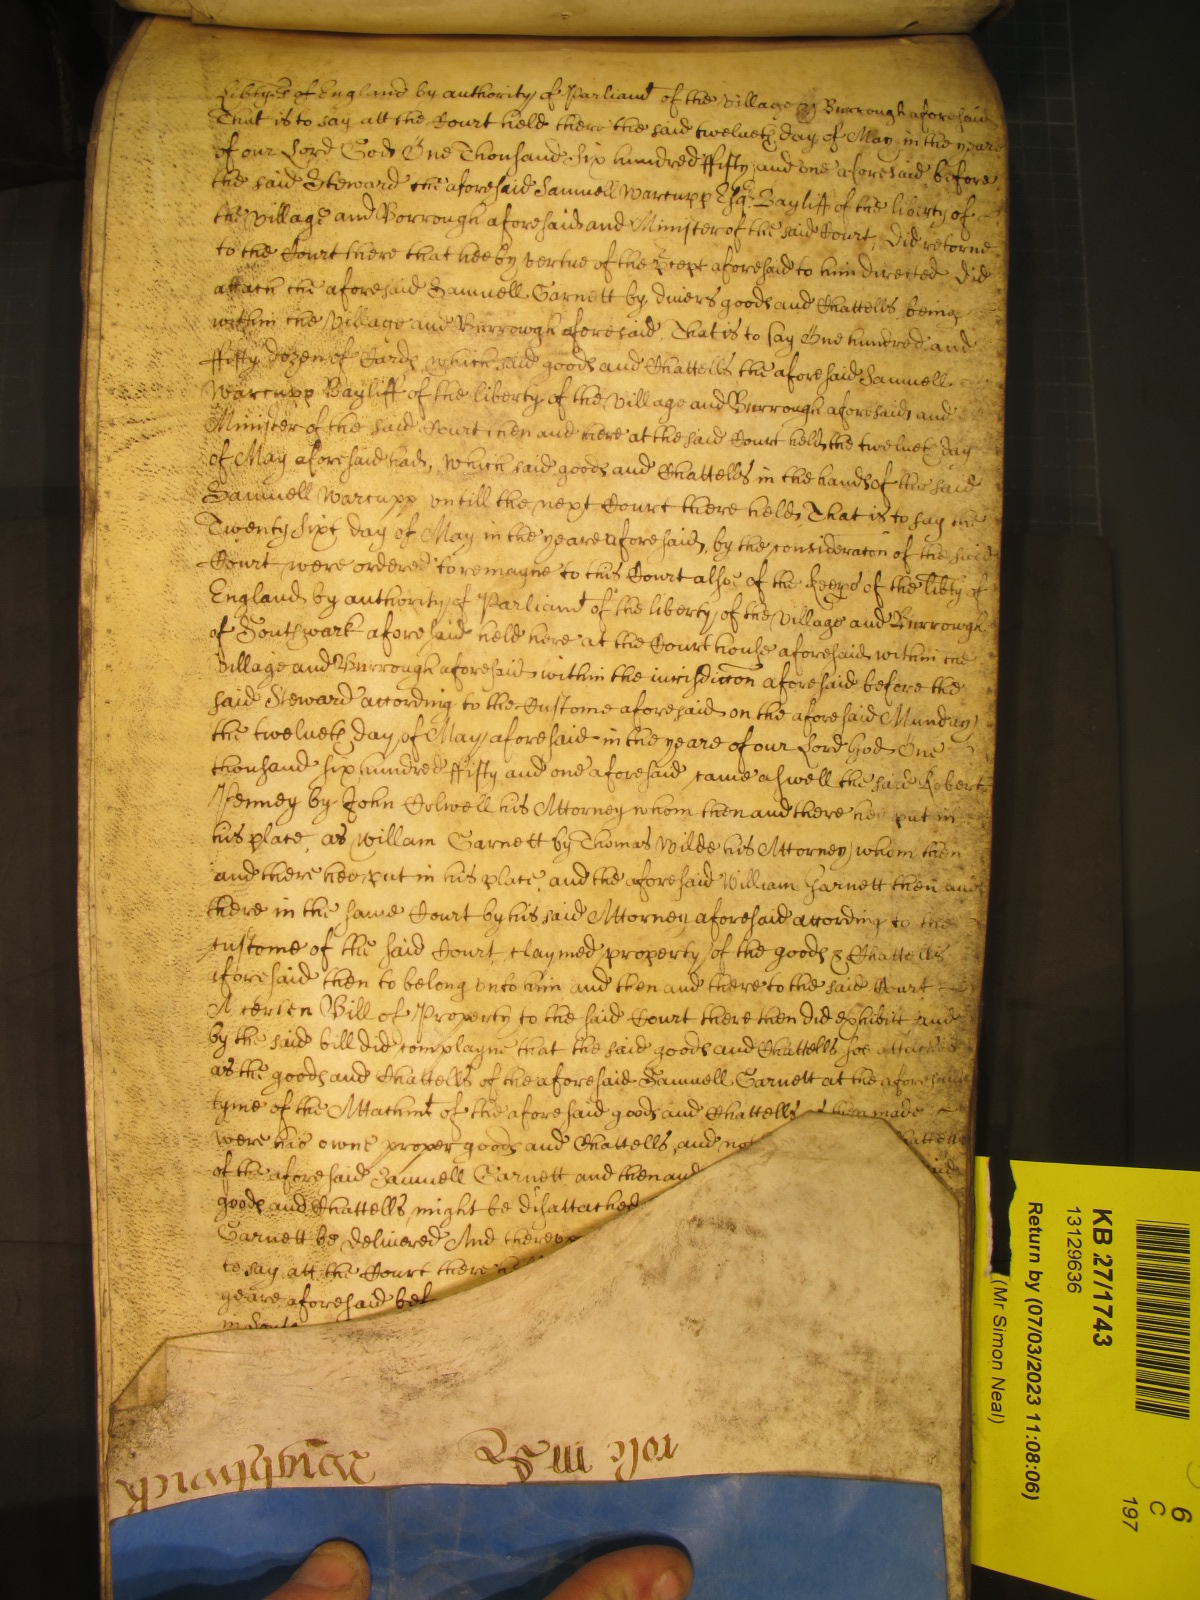 Libtyes of England by authority of Parliamt of the village & Burrough aforesaid
That is to say att the Court held there the said twelueth day of May in the yeare
of our Lord God One Thousand Six hundred ffifty and one aforesaid before
the said Steward the aforesaid Samuell Warcupp Esqr Bayliff of the liberty of
the village and Borrough aforesaid and Minister of the said Court, Did retorne
to the Court there that hee by vertue of the aforesaid to him directed did
attach the aforesaid Samuell Garnett by divers goods and Chattells being
within the village and Burrowgh aforesaid, That is to say One hundred and
ffifty dozen of Cards which said goods and Chattells the aforesaid Samuell
Warcupp Bayliff of the liberty of the village and Burrough aforesaid and
Minister of the said Court then and there at the said Court held the twelueth day
of May aforesaid had, which said goods and Chattells in the hands of the said
Samuell Warcupp vntill the next Court there held, That is to say the
Twenty Sixt day of May in the yeare aforesaid, by the consideracon of the said
Court were ordered to remayne to this Court alsoe of the Keeprs of the libty of
England by authority of Parliamt of the liberty of the village and Burrowgh
of Southwark aforesaid held here at the Court house aforesaid within the
village and Burrough aforesaid within the iurisdiccon aforesaid before the
said Steward according to the Custome aforesaid on the aforesaid Munday
the twelueth day of May aforesaid in the yeare of our Lord God One
thousand six hundred ffifty and one aforesaid came aswell the said Robert
Penney by John Colwell his Attorney whom then and there hee put in
his place, as William Garnett by Thomas Wilde his Attorney whom then
and there hee put in his place, and the aforesaid William Garnett then and
there in the same Court by his said Attorney aforesaid according to the
custome of the said Court claymed property of the goods & Chattells
aforesaid then to belong vnto him and then and there to the said Court
A certen Bill of Property to the said Court there then did exhibitt and
by the said bill did complayne that the said goods and Chattells soe attached
as the goods and Chattells of the aforesaid Samuell Garnett at the aforesaid
tyme of the Attachmt of the aforesaid goods and Chattells made
were his owne proper goods and Chattells, and not
of the aforesaid Samuell Garnett and then and
goods and Chattells might be disattached
Garnett be delivered And therevp
to say att the Court there
yeare aforesaid bef
role
Wightwick
KB 27/1743
13129636
Return by (07/03/2023 11:08:06)
(Mr Simon Neal)
6
C
197